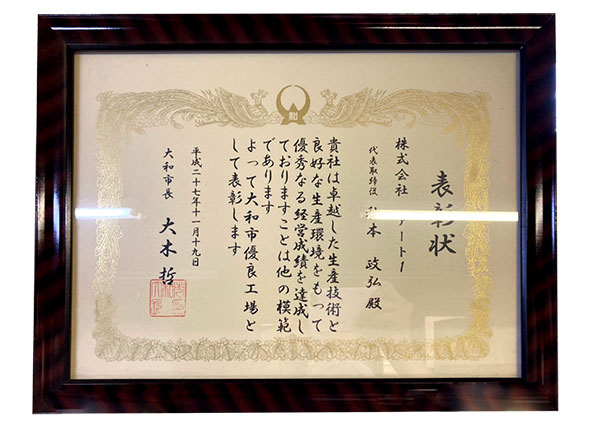 表彰状
株式会社 アート1
代表取締役 本 政弘 殿
貴社は卓越した生産技術と
良好な生産環境をもって
優秀なる経営成績を達成し
ておりますことは他の模範
であります
よって大和市優良工場と
して表彰します
平成二十七年十一月十九日
大和市長 大木 哲